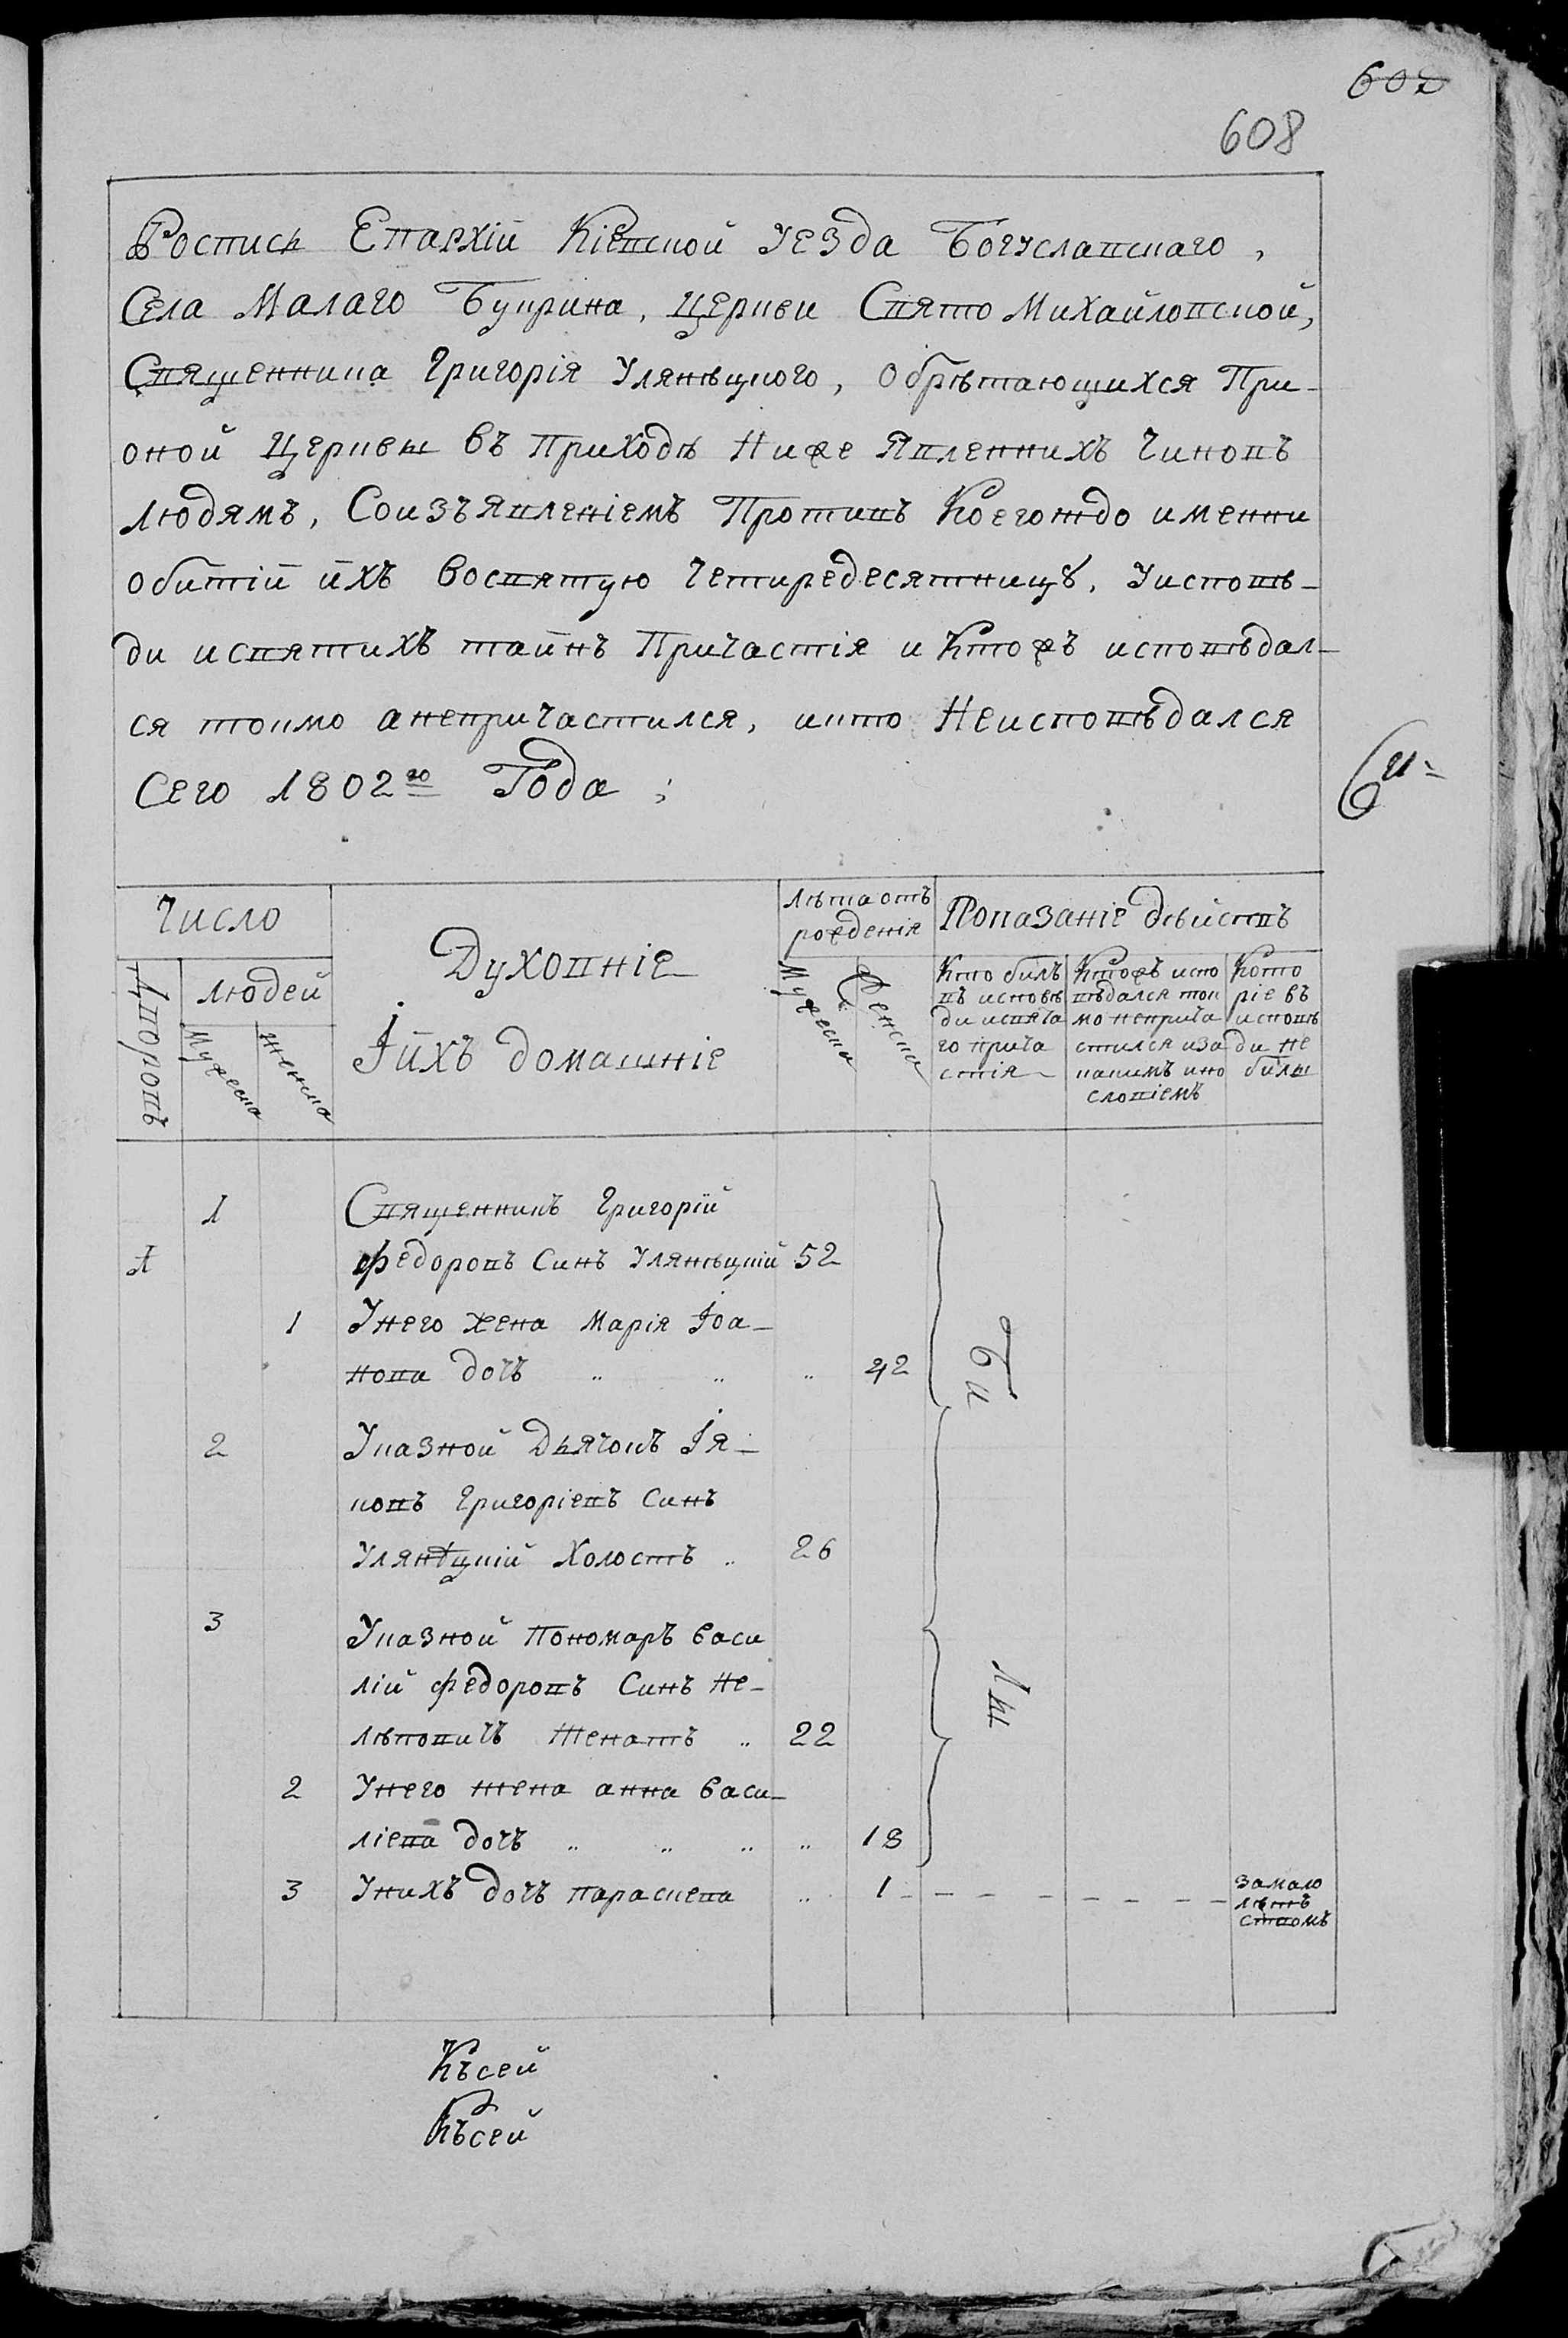 608
Роспись Епархіи Кіевской Уезда Богуславскаго,
Села Малаго Букрина, Церкви Свято Михайловской,
Священника Григорія Улянѣцкого, обрѣтающихся При-
оной Церквы въ приходѣ Ниже Явленнихъ Чиновъ
людямъ, Соизъявленіемъ Противъ Коегождо именни
обитіи ихъ восвятую Четиредесятницу, Уисповѣ-
ди исвятихъ таинъ Причастія и Ктожъ исповѣдал-
ся токмо анепричастился, икто Неисповѣдался
Сего 1802го Года ;
Число
Духовніе
Іихъ домашніе
лѣта отъ
рожденія
Показаніе дѣйствъ
Дворовъ
людей
Мужеска
женска
Мужеска
Женска
Кто билъ
въ исповѣ
ди исвята
го прича
стія
Ктожъ испо
вѣдался ток
мо неприча
стился иза
какимъ ино
словіемъ
Кото
ріе въ
исповѣ
ди не
билы
1 Священникъ Григорій
1 федоровъ Синъ Улянѣцкій 52
1 Унего жена Марія Іоа-
нова дочъ 42
2 Указной Дьячокъ Ія-
ковъ Григоріевъ Синъ
Улянѣцкій Холостъ 26
3 Указной Пономаръ васи
лій федоровъ Синъ Не-
лѣповичъ Женатъ 22
2 Унего жена анна васи-
ліева дочъ 18
3 Унихъ дочъ параскева 1
Би
лы
замало
лѣтъ
ствомъ
Късей
Късей